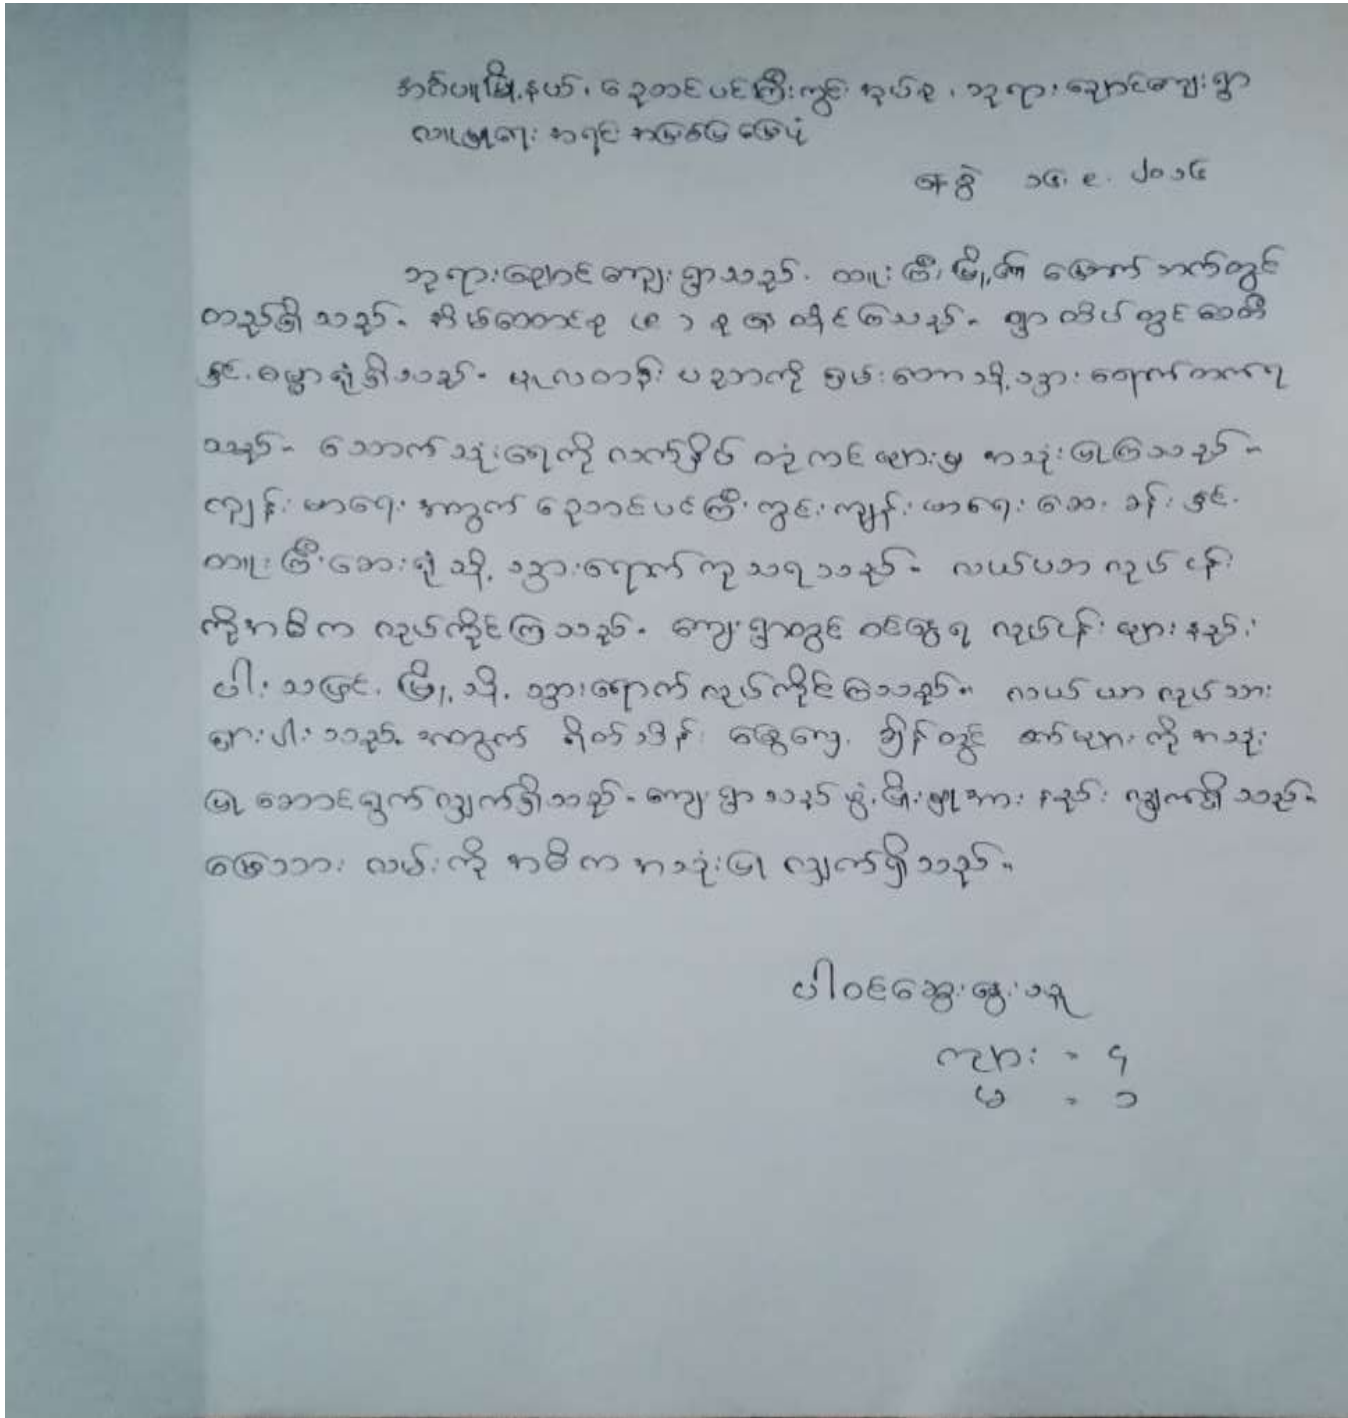 အင်္ဂပူမြို့နယ်၊ ညောင်ပင်ကြီးကွင်း အုပ်စု၊ ဘုရားချောင်ကျေးရွာ
လူမှုရေး အရင်းအမြစ်ပြ မြေပုံ
နေ့စွဲ ၁၄.၉.၂၀၁၄
ဘုရားချောင်ကျေးရွာသည် ထူးကြီးမြို့၏ မြောက်ဘက်တွင်
တည်ရှိသည်။ အိမ်ထောင်စု (၉၁) စု နေထိုင်ကြသည်။ ရွာထိပ်တွင်စေတီ
နှင့် ဓမ္မာရုံရှိသည်။ မူလတန်း ပညာကို သွားရောက်တက်ရ
သည်။ သောက်သုံးရေကို လက်နှိပ်တုံကင်များမှ အသုံးပြုကြသည်။
ကျန်းမာရေးအတွက် ညောင်ပင်ကြီးကွင်းကျန်းမာရေးဆေးခန်းနှင့်
ထူးကြီးဆေးရုံသို့ သွားရောက်ကုသရသည်။ လယ်ယာလုပ်ငန်း
ကိုအဓိက လုပ်ကိုင်ကြသည်။ ကျေးရွာတွင် ဝင်ငွေရ လုပ်ငန်းများနည်း
ပါးသဖြင့် မြို့သို့ သွားရောက်လုပ်ကိုင်ကြသည်။ လယ်ယာလုပ်သား
ရှားပါးသည့်အတွက် ရိတ်သိမ်းခြွေလှေ့ချိန်တွင် စက်များကိုအသုံး
ပြုဆောင်ရွက်လျှက်ရှိသည်။ ကျေးရွာသည် ဖွံ့ဖြိုးမှုအားနည်းလျှက်ရှိသည်။
မြေသားလမ်းကို အဓိကအသုံးပြုလျှက်ရှိသည်။
ပါဝင်ဆွေးနွေးသူ
ကျား = ၄
မ = ၁